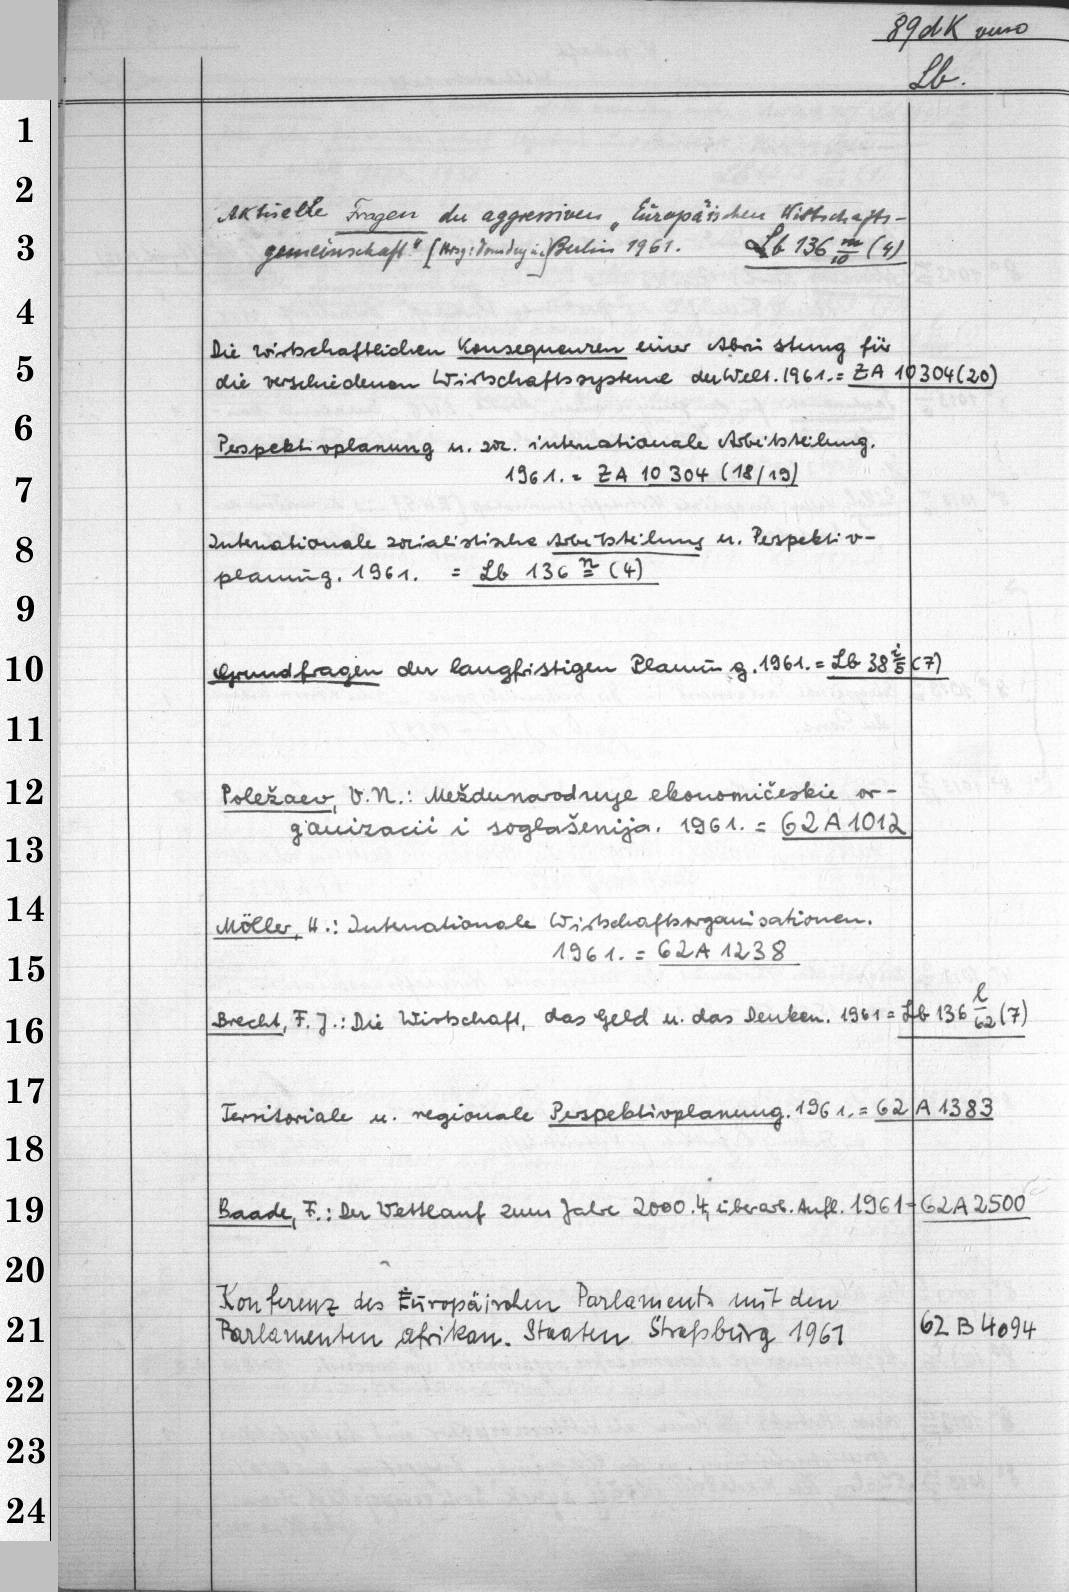 89dK verso
Lb.
1
2
Aktuelle Fragen der aggressiven „Europäischen Wirtschafts-
3
gemeinschaft." Berlin 1961. Lb 136 m/10 (4)
4
Die wirtschaftlichen Konsequenzen einer Abrüstung für
5
die verschiedenen Wirtschaftssysteme der Welt. 1961. = ZA 10304(20)
6
Perspektivplanung u. soz. internationale Arbeitsteilung.
7
1961. = ZA 10 304 (18/19)
8
Internationale sozialistische Arbeitsteilung u. Perspektiv-
planung. 1961. = Lb 136 n (4)
9
10
Grundfragen der langfristigen Planung. 1961. = Lb 38 i/5 (7)
11
12
Poležaev, V.N.: Meždunarodnye ekonomičeskie or-
ganizacii i soglašenija. 1961. = 62 A 1012
13
14
Möller, H.: Internationale Wirtschaftsorganisationen.
15
1961. = 62 A 1238
16
Brecht, F. J.: Die Wirtschaft, das Geld u. das Denken. 1961 = Lb 136 l/62 (7)
17
Territoriale u. regionale Perspektivplanung. 1961. = 62 A 1383
18
19
Baade, F.: Der Wettlauf zum Jahre 2000. 4., überarb. Aufl. 1961 = 62 A 2500
20
Konferenz des Europäischen Parlaments mit den
21
Parlamenten afrikan. Staaten Straßburg 1961 62 B 4094
22
23
24